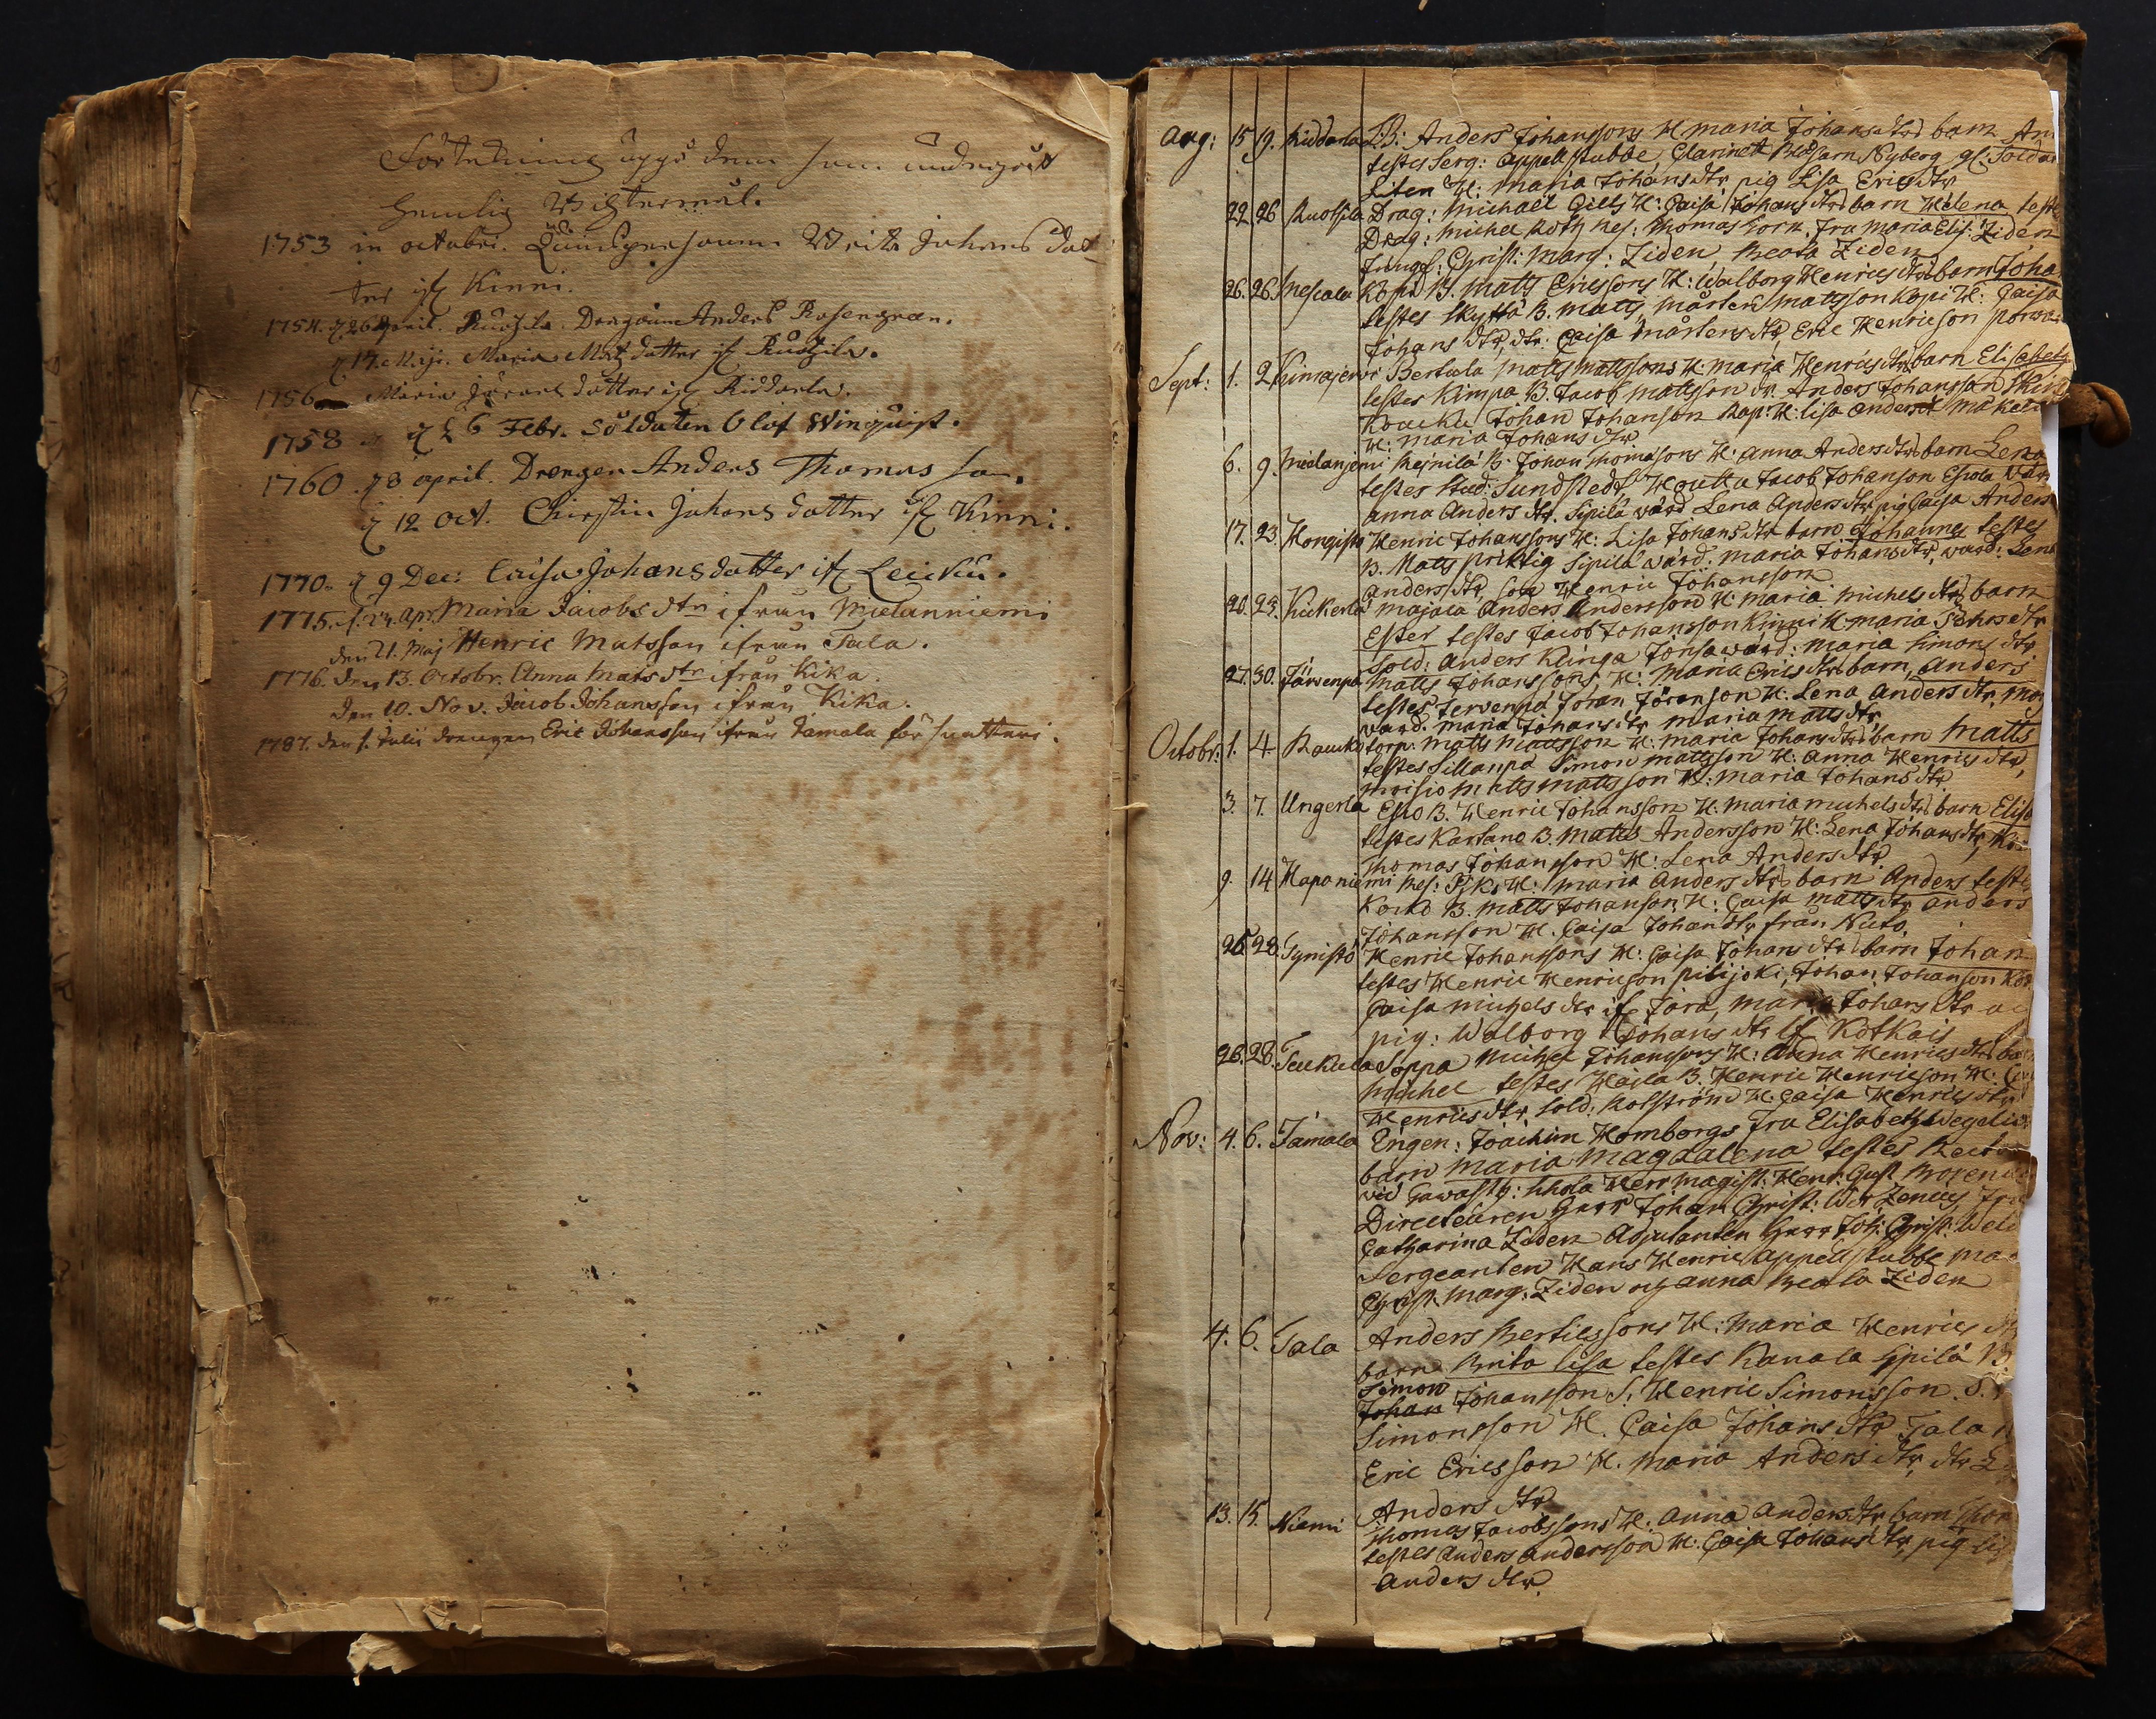 Förtekning uppå dem som undergåt
hemlig Skriftermål.
1753 in octobri. Qwinspersonen Brita Johans dot
ter ifr Kinni.
1754. d 26 April. Ruohila. Dragoun Anders Rosengren.
d 17 Maji. Maria Matz dotter ifr Ruohila.
1756 Maria Jörans dotter ifr Riddarla.
1758 d 26 Febr. Soldaten Olof Winquist.
1760. d 8 april. Drengen Anders Thomas son.
d 12 Oct. Chirstin Johans dotter ifr Kinni.
1770. d 9 Dec: Caisa Johansdotter ifr Leicku.
1775. d. 24. Apr. Maria Jacobs dtr ifrån Mielanniemi
den 21. Maj Henric Matsson ifrån Tala.
1776. den 13. Octobr. Anna Mats dtr ifrån Kika.
den 10. Nov. Jacob Johansson ifrån Kika.
1787. den 1. Julii drengen Eric Johansson ifrån Jamala för snatteri.
Aug: 15 19. Riddarla B: Anders Johanssons H Maria Johans dtr barn An
testes Serg: Appellstubbe, Clarinett Nyberg gl: Soldat
Liten H: Maria Johans dtr pig Lisa Erics dtr
22 26 Ruohila Drag: Michaël Gills H: Caisa Johans dtr barn Helena teste
Drag: Michel Roth Res: Thomas Kork. Fru Maria Elis: Ziden
Jungf: Christ: Marg: Ziden, Beata Ziden
26. 26 Mescala Köpi B. Matts Ericssons H: Walborg Henrics dtr barn Joha
testes Skyttä B. Matts, Mårten Mattsson Köpi H: Caisa
Johans dtr, dtr. Caisa Mårtens dtr, Eric Henricson
Sept: 1. 2 Kimajerwi Bertula Matts Mattssons H: Maria Henrics dtr barn Elisabeth
testes Kimpa B. Jacob Mattsson dr. Anders Johansson
Johan Johanson Rap: H: Lisa Anders Mäkelä
H: Maria Johans dtr
6. 9. Mielanjemi B. Johan Thomassons H: Anna Anders dtr barn Lena
testes Stud: Sundstedt, Jacob Johanson
Anna Anders dtr. Sipilä wärd Lena Anders dtr pig Caisa Anders
17. 23 Hongisto Henric Johanssons H: Lisa Johans dtr barn Johannes testes
B. Matts Sipilä wärd. Maria Johans dtr, ward: Lena
Anders dtr, son Henric Johansson
20. 23. Kickerla Majala Anders Andersson H: Maria Michels dtr barn
Ester testes Jacob Johansson Kinni H Maria Johs dtr
Sold: Anders Klinga wärd: Maria Simons dtr
27. 30. Järvenpä Matts Johanssons H: Maria Erics dtr barn, Anders
testes Jervenpä Jöran Jöranson H: Lena Anders dtr,
ward. Maria Johans dtr Maria Matts dtr
Octobr: 1. 4 torp: Matts Mattsson H: Maria Johans dtr barn Matts
testes Sillanpä Simon Mattsson H: Anna Henrics dtr,
Moisio Matts Mattsson H: Maria Johans dtr
3. 7. Ungerla B. Henric Johansson H: Maria Michels dtr barn Elisa
testes Kartano B. Matts Andersson H: Lena Johans dtr,
Thomas Johansson H: Lena Anders dtr
9. 14 Haponiemi Res: H: Maria Anders dtr barn Anders teste
B. Matts Johanson, H: Caisa Matts dtr Anders
Johansson H. Caisa Johan dtr från
25. 28. Henric Johanssons H: Caisa Johans dtr barn Johan
testes Henric Henricson Johan Johanson
Caisa Michels dtr if Maria Johans dtr
pig: Walborg Johans dtr if
26. 28. Teukula Soppa Michel Johanssons H: Anna Henrics dtr
Michel testes B. Henric Henricson H:
Henrics dtr, Sold: H: Caisa Henrics dtr
Nov: 4. 6. Jamala Engen: Joachim Hombergs Fru Elisabeth
barn Maria Magdalena testes Rect
wid Tawasth: Schola Herr Magist: Henr: Gust
Directeuren Herr Johan Christ: Fru
Catharina Ziden Adjutanten Herr Joh: Christ:
Sergeanten Hans Henric Appellstubbe
Christ: Marg: Ziden och Anna Beata Ziden
4. 6. Tala Anders Bertilssons H: Maria Henrics
barn Brita Lisa testes Sipilä B
Simon
Johan Johansson S: Henric Simonsson. S.
Simonsson H. Caisa Johans dtr Tala
Eric Ericsson H. Maria Anders dtr, dtr
Anders dtr
13. 15. Niemi Thomas Jacobssons H: Anna Anders dtr barn Thom
testes Anders Andersson H: Caisa Johans dtr, pig Lis
Anders dtr.